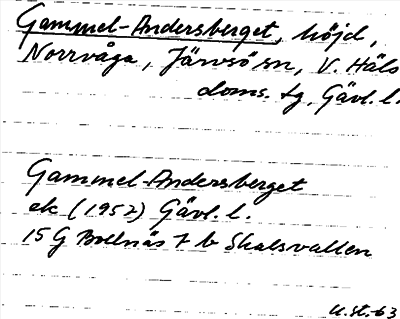 Gammel-Andersberget, höjd,
Norrvåga, Järvsö sn, V. Häls
doms. tg, Gävl. l.
Gammel-Andersberget
ek (1952) Gävl. l.
15 G Bollnäs 7 b Skalsvallen
U.st.-63